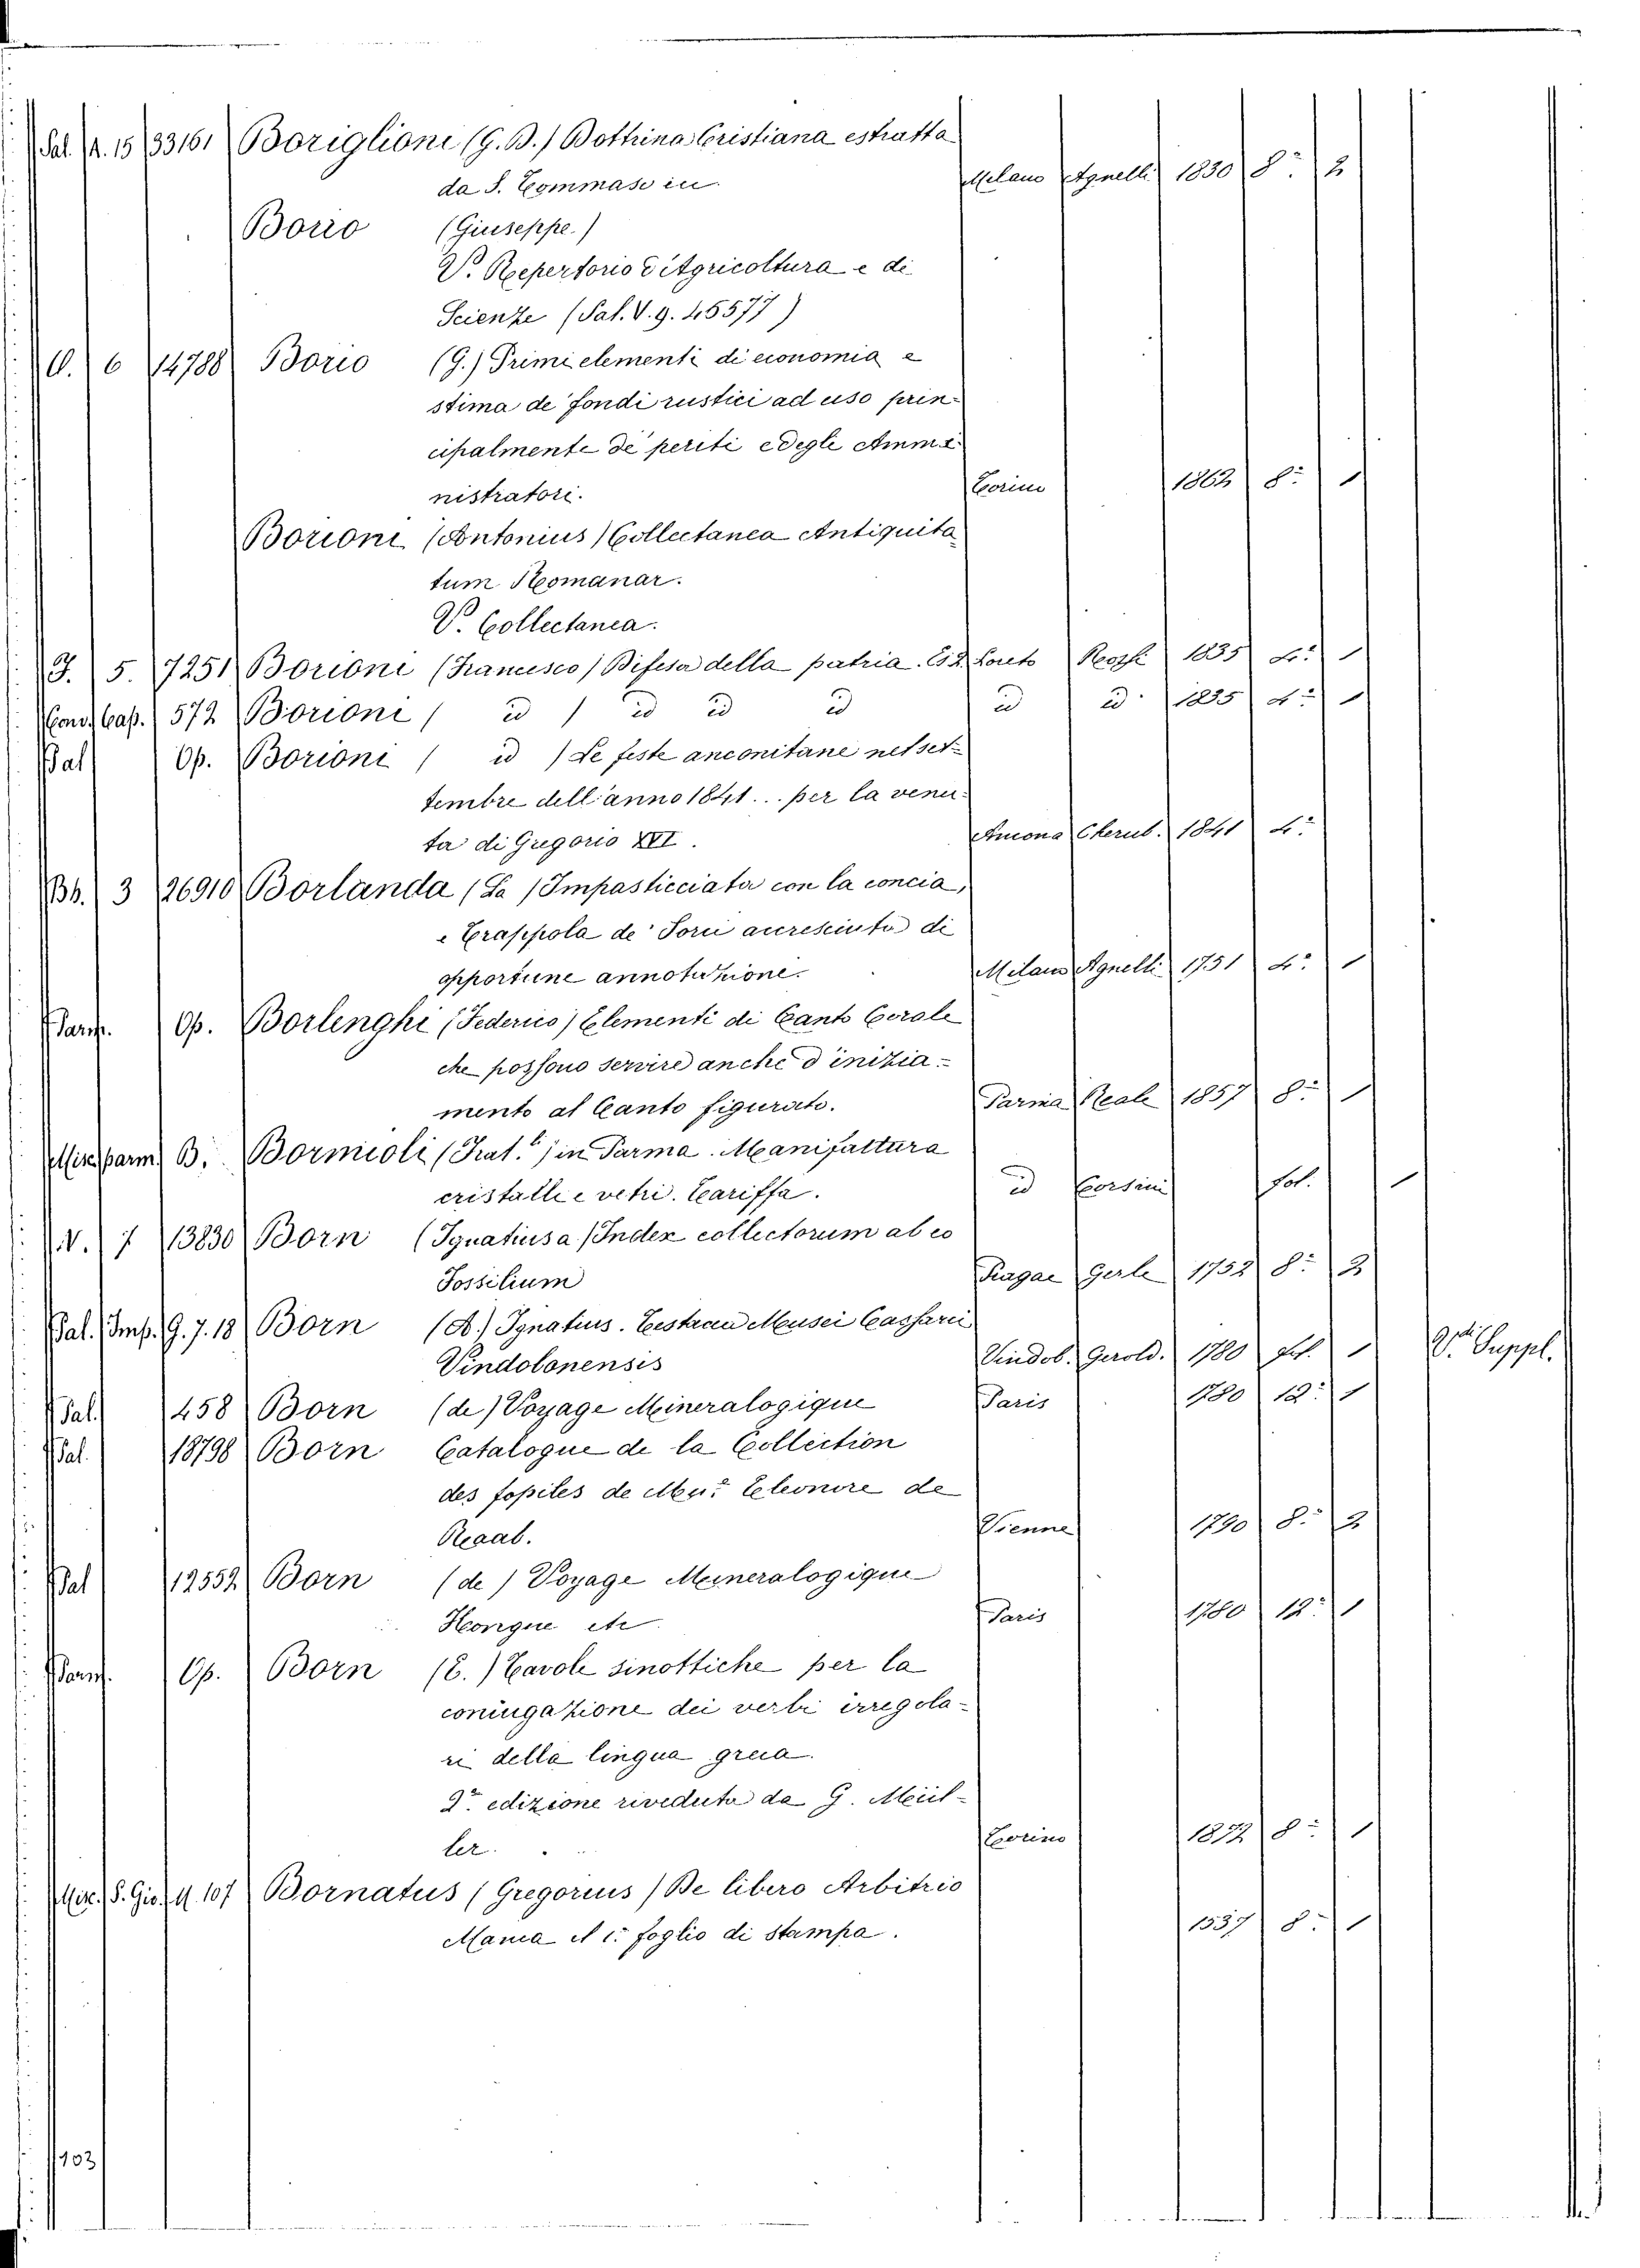 Pal. R. 15 33161 Boriglioni (G. B.) Dottrina Cristiana estratta
da S. Tommaso in Milano Agnelli 1830 8° 2
Borio (Giuseppe.)
V. Repertorio d'Agricoltura e di
Scienze (Pal. V. g. 45577)
O. 6 14788 Borio (G.) Primi elementi di economia e
stima de' fondi rustici ad uso prin-
cipalmente de' periti e degli Ammi-
nistratori. Torino 1862 8° 1
Borioni (Antonius) Collectanea Antiquita
tum Romanar.
V. Collectanea.
J. 5. 7251 Borioni (Francesco) Difesa della patria. Ed. Loreto Rossi 1835 4° 1
Cond. Cap. 572 Borioni ( id ) id id id id id 1835 4° 1
Pal Op. Borioni ( id ) Le feste anconitane nel set-
tembre dell'anno 1841... per la venu-
ta di Gregorio XVI. Ancona Cherub. 1841 4°
Bb. 3 26910 Borlanda (La) Impasticciata con la concia,
e Trappola de' Torii accresciuta di
opportune annotazione. Milano Agnelli 1751 4° 1
Parm. Op. Borlenghi (Federico) Elementi di Canto Corale
che possono servire anche d'inizia-
mento al Canto figurato. Parma Reale 1857 8° 1
Misc. parm B. Bormioli (Frat.) in Parma. Manifattura
cristalli e vetri. Tariffa. id Corsini fol. 1
N. 7 13830 Born (Ignatius a) Index collectorum ab eo
Fossilium Pragae Gerle 1752 8° 2
Pal. Imp. G. 7. 18 Born (A.) Ignatius. Testacea Musei Cassarei
Vindobonensis Vindob. Gerold. 1780 fol. 1 V. Suppl.
Pal. 458 Born (de) Voyage Mineralogique Paris 1780 12° 1
Pal. 18798 Born Catalogue de la Collection
des fossiles de Eleonore de
Raab. Vienne 1790 8° 2
Pal 12552 Born (de) Voyage Mineralogique
Hongrie etc Paris 1780 12° 1
Parm. Op. Born (E.) Tavole sinottiche per la
coniugazione dei verbi irregola-
ri della lingua greca.
2a edizione riveduta da G. Mül-
ler. Torino 1872 8° 1
Misc. S. Gio. 4. 107 Bornatus (Gregorius) De libero Arbitrio
Manca il 1° foglio di stampa. 1537 8° 1
103